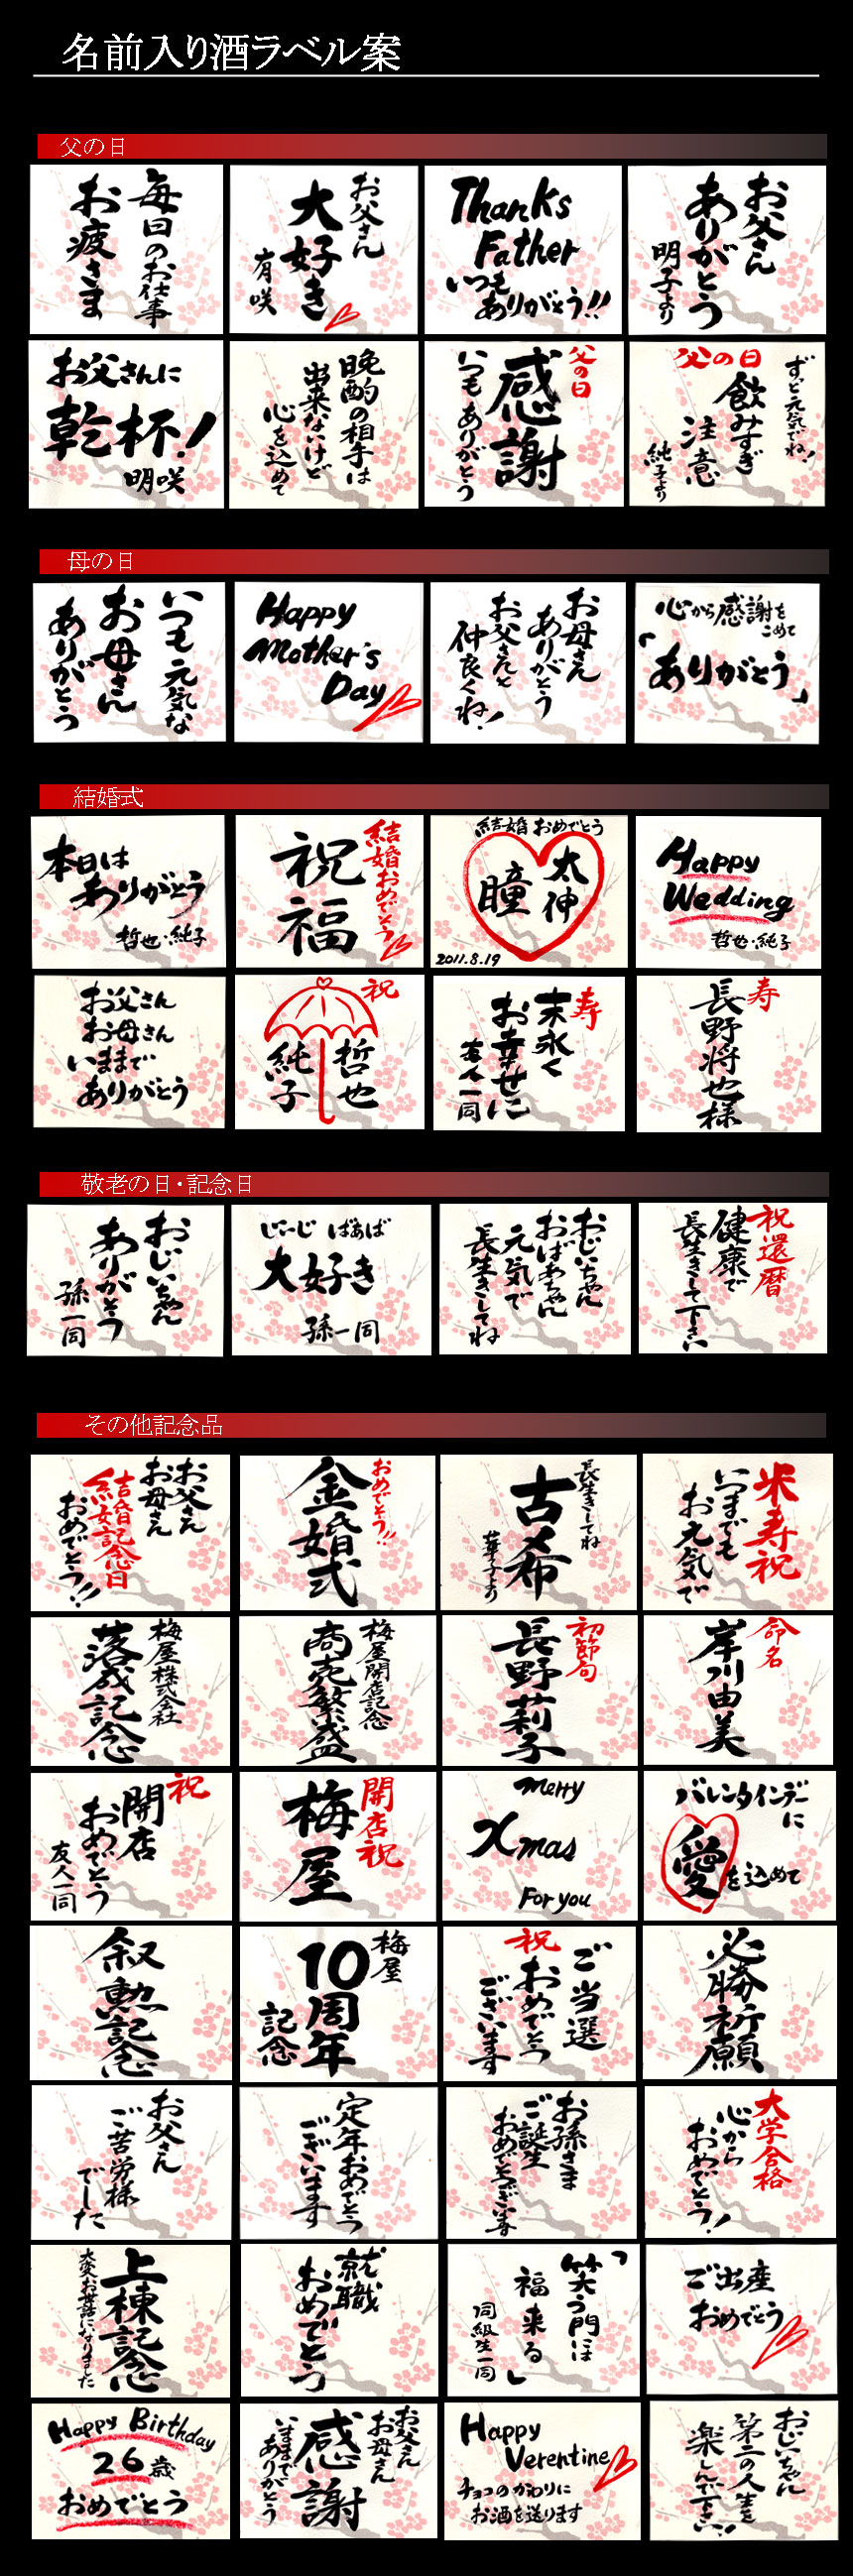 名前入り酒ラベル案
父の日
毎日のお仕事
お疲さま
お父さん
大好き
有咲
Thanks
Father
いつも
ありがとう!!
お父さん
ありがとう
明子より
お父さんに
乾杯!
明咲
晩酌の相手は
出来ないけど
心を込めて
父の日
感謝
いつもありがとう
父の日
ずっと元気でね!
飲みすぎ
注意
純子より
母の日
いつも元気な
お母さん
ありがとう
Happy
Mother's
Day
お母さん
ありがとう
お父さんと
仲良くね!
心から感謝を
こめて
「ありがとう」
結婚式
本日は
ありがとう
哲也・純子
結婚おめでとう
祝福
結婚おめでとう
太伸
瞳
2011.8.19
Happy
Wedding
哲也・純子
お父さん
お母さん
いままで
ありがとう
祝
哲也
純子
寿
末永く
お幸せに
友人一同
寿
長野将也様
敬老の日・記念日
おじいちゃん
ありがとう
孫一同
じーじ ばぁば
大好き
孫一同
おじいちゃん
おばあちゃん
元気で
長生きしてね
祝還暦
健康で
長生きして下さい
その他記念品
お父さん
お母さん
結婚記念日
おめでとう!!
おめでとう!!
金婚式
長生きしてね
古希
華子より
米寿祝
いつまでも
お元気で
梅屋株式会社
落成記念
梅屋開店記念
商売繁盛
初節句
長野莉子
命名
岸川由美
祝
開店
おめでとう
友人一同
開店祝
梅屋
Merry
Xmas
For you
バレンタインデー
に
愛を込めて
叙勲記念
梅屋
10周年
記念
祝
ご当選
おめでとう
ございます
必勝祈願
お父さん
ご苦労様
でした
定年おめでとう
ございます
お孫さま
ご誕生
おめでとうございます
大学合格
心から
おめでとう!
上棟記念
大変お世話になりました
就職
おめでとう
「笑う門には
福来る」
同級生一同
ご出産
おめでとう
Happy Birthday
26歳
おめでとう
お父さん
お母さん
感謝
いままで
ありがとう
Happy
Verentine
チョコのかわりに
お酒を送ります
おじいちゃん
第二の人生を
楽しんで下さい!